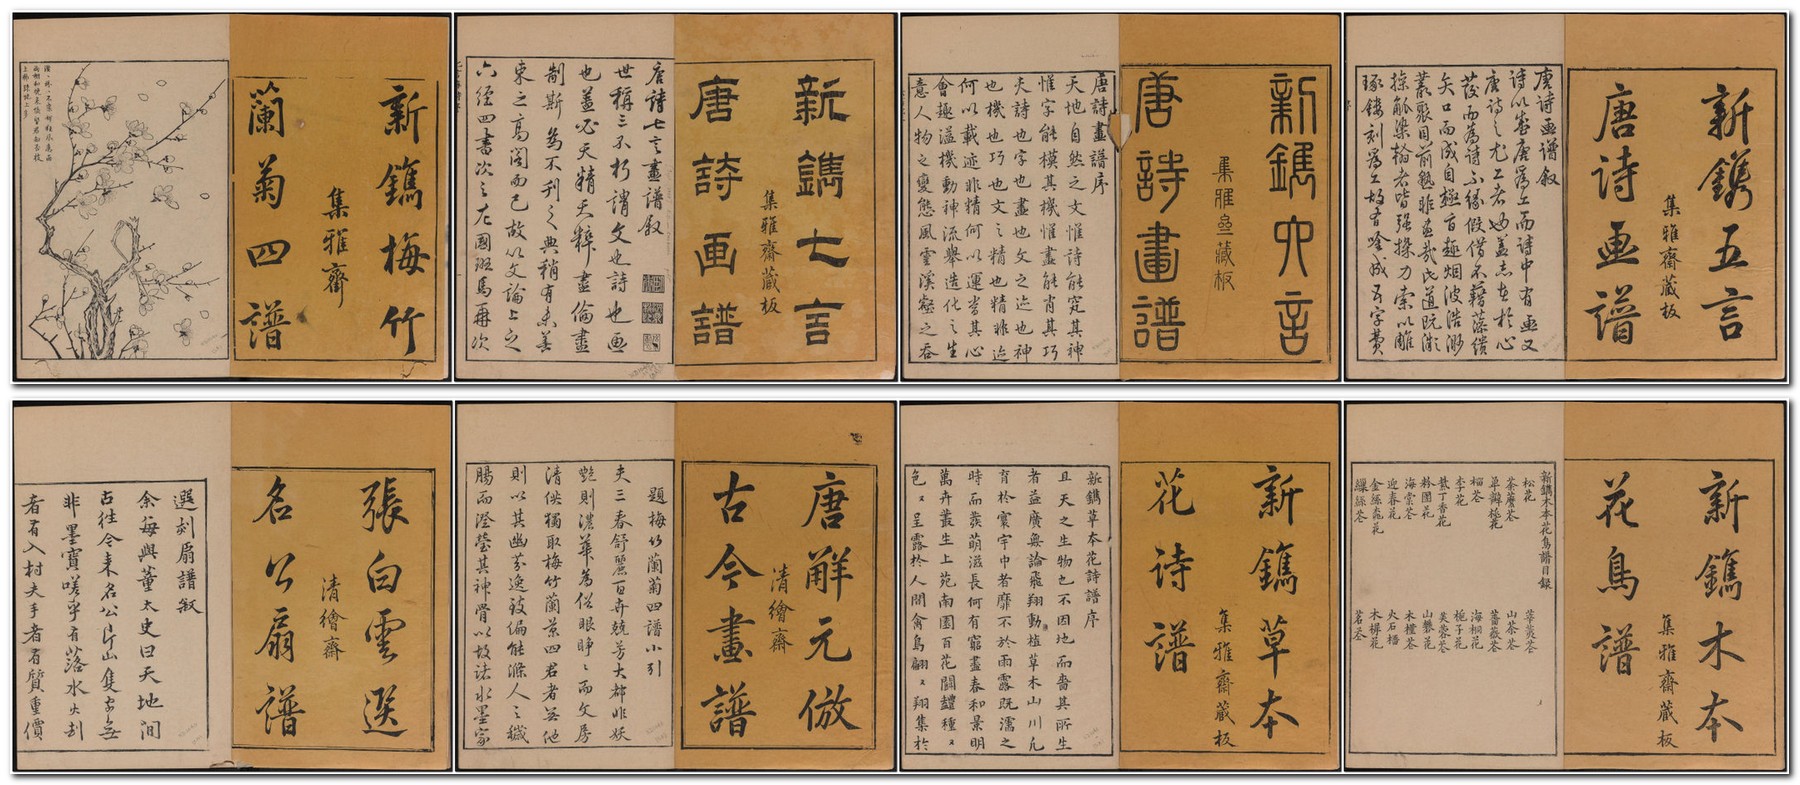 新鐫五言
集雅齋藏板
唐诗画譜
唐诗画譜叙
诗以盛唐為工而诗中有画又
唐诗之尤工者也蓋志在於心
發而為诗不缘假借不藉藻缋
矢口而成自極旨趣烟波浩渺
叢聚目前孰非画哉氏道既漓
操觚染翰者皆强操刀索以雕
琢鏤刻為工故有唫成五字費
新鐫六言
集雅齋藏板
唐詩畫譜
唐詩畫譜序
天地自然之文惟詩能究其神
惟字能模其機惟畫能肖其巧
夫詩也字也畫也文之迹也神
也機也巧也文之精也精非迹
何以載迹非精何以運當其心
會趣溢機動神流舉造化之生
意人物之變態風雲溪壑之吞
新鐫七言
集雅齋藏板
唐詩画譜
唐诗七言畫譜叙
世稱三不朽謂文也詩也画
也蓋必天精天粹盡倫盡
制斯為不刊之典稍有未善
束之高阁而已故以文論上之
六經四書次之左國班馬再次
新鐫梅竹
集雅齋
蘭菊四譜
新鐫木本
集雅齋藏板
花鳥譜
新鐫木本花鳥譜目録
松花
茶蘼花
單瓣桃花
榴花
李花
紫丁香花
粉團花
海棠花
迎春花
金絲桃花
纓絡花
山茶花
薔薇花
海桐花
梔子花
芙蓉花
山礬花
木槿花
火石榴
木樨花
茗花
新鐫草本
集雅齋藏板
花诗譜
新鐫草本花詩譜序
且天之生物也不因地而嗇其所生
者益廣無論飛翔動植草木山川凡
育於寰宇中者靡不於雨露既濡之
時而萌滋長何有窮盡春和景明
萬卉叢生上苑南園百花鬪豔種ㄡ
色ㄡ呈露於人間禽鳥翩ㄡ翔集於
唐解元倣
清繪齋
古今畫譜
題梅竹蘭菊四譜小引
夫三春舒麗百卉競芳大都非妖
艷則濃華為俗眼睜ㄡ而文房
清供獨取梅竹蘭菊四君者無他
則以其幽芬逸致偏能滌人之穢
腸而澄瑩其神骨以故法水墨家
張白雲選
清繪齋
名公扇譜
選刻扇譜叙
余每與董太史曰天地间
古往今来名公片山隻水無
非墨寶嗟乎有落水火刦
者有入村夫手者有質重價